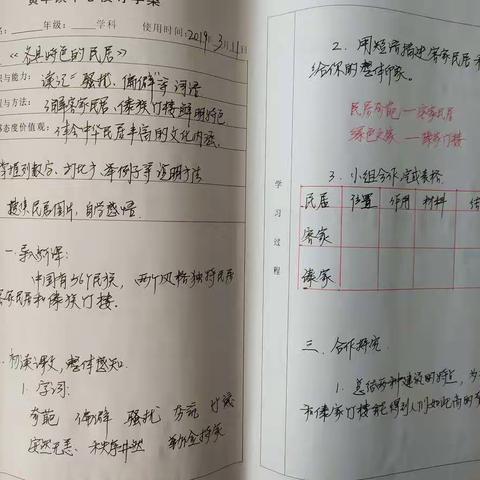 年级：
学科
使用时间：2019年3月11日
《各具特色的民居》
识与能力：
读记“骚扰、偏僻”等词语
与方法：
了解客家民居、傣族竹楼鲜明特色
态度价值观：
体会中华民居丰富的文化内涵
掌握列数字、打比方、举例子等说明方法
搜集民居图片，自学感悟
一、导入新课：
中国有56个民族，两个风格独特民居
客家民居和傣族竹楼。
初读课文，整体感知
1. 字词：
奇葩 偏僻 骚扰
安然无恙 秩序井然
2. 用短语描述客家民居
给你的整体印象。
民居奇葩——客家民居
绿色之家——傣族竹楼
学习过程
3. 小组合作完成表格
民居 位置 作用 材料 结
客家
傣家
三、合作探究
1. 总结两种建筑的特点，为
和傣家竹楼能得到人们如此高的